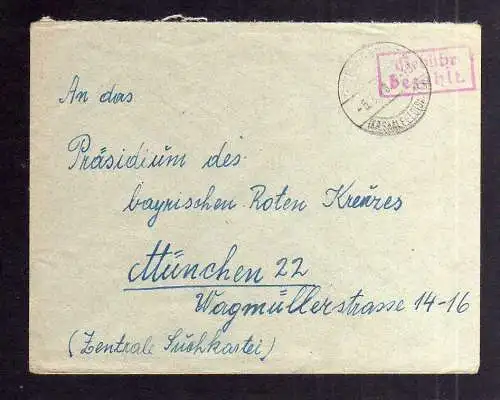 Gebühr
bezahlt.
An das
Präsidium des
bayrischen Roten Kreuzes
München 22
Wagmüllerstrasse 14-16
(Zentrale Suchkartei)